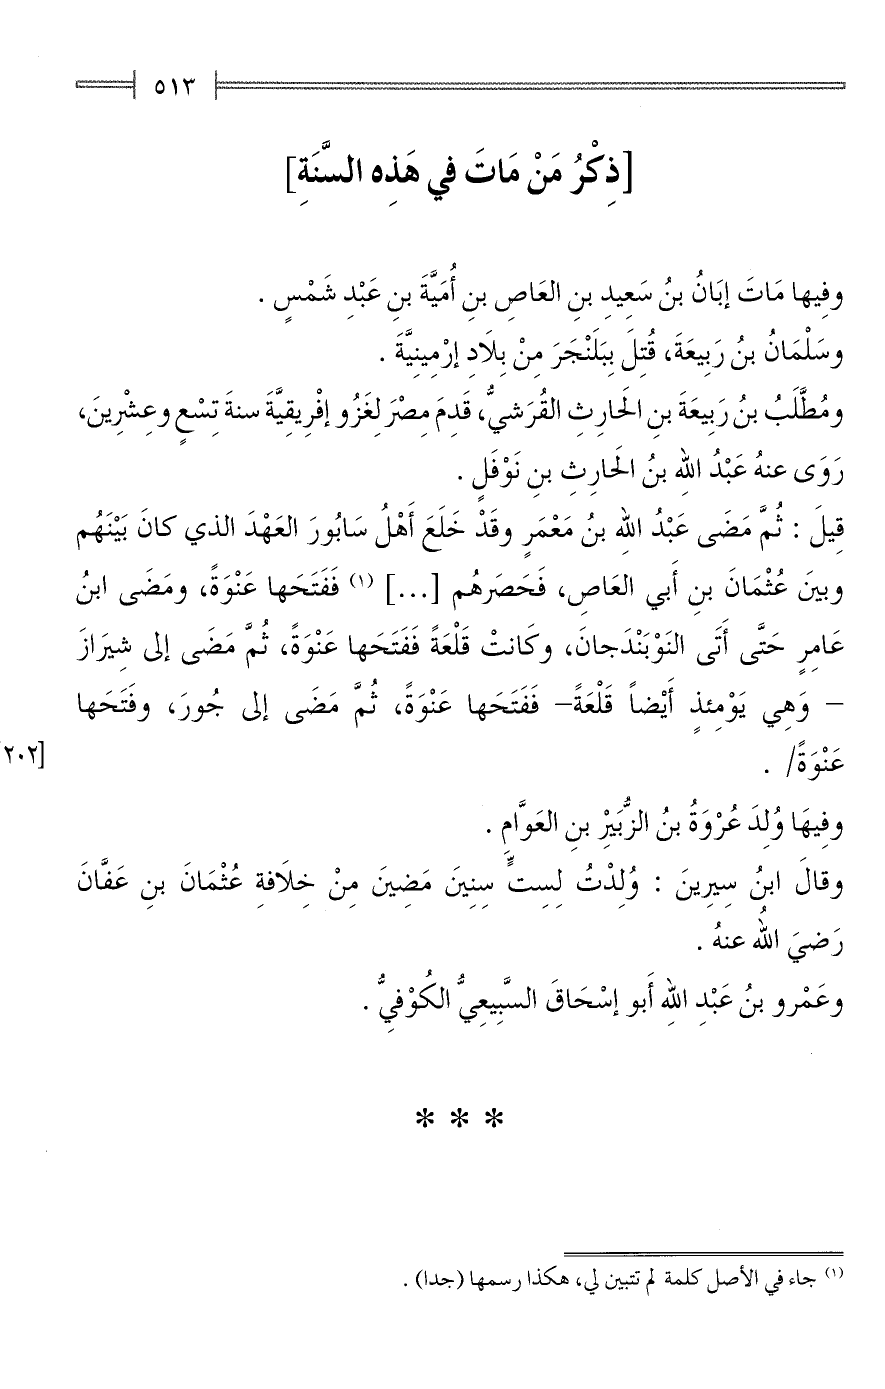 ٥١٣
[ذِكْرُ مَنْ مَاتَ في هَذِه السَّنَةِ]
وفِيها مَاتَ إبَانُ بنُ سَعِيدِ بنِ العَاصِ بنِ أُمَيَّةَ بنِ عَبْدِ شَمْسٍ .
وسَلْمَانُ بنُ رَبِيعَةَ، قُتِلَ بِبَلَنْجَرَ مِنْ بِلَادِ إرْمِينِيَّةَ .
ومُطَّلَبُ بنُ رَبِيعَةَ بنِ الحَارِثِ القُرَشيُّ، قَدِمَ مِصْرَ لِغَزُو إفْرِيقِيَّةَ سنةَ تِسْعٍ وعِشْرِينَ،
رَوَى عنهُ عَبْدُ اللهِ بنُ الحَارِثِ بنِ نَوْفَلٍ .
قِيلَ : ثُمَّ مَضَى عَبْدُ اللهِ بنُ مَعْمَرٍ وقَدْ خَلَعَ أَهْلُ سَابُورَ العَهْدَ الذي كانَ بَيْنَهُم
وبينَ عُثْمَانَ بنِ أَبي العَاصِ، فَحَصَرهُم [...] (١) فَفَتَحَها عَنْوَةً، ومَضَى ابنُ
عَامِرٍ حَتَّى أَتَى النَوْبَنْدَجانَ، وكَانتْ قَلْعَةً فَفَتَحَها عَنْوَةً، ثُمَّ مَضَى إلى شِيَرازَ
– وَهِي يَوْمِئذٍ أَيْضاً قَلْعَةً– فَفَتَحَها عَنْوَةً، ثُمَّ مَضَى إلى جُورَ، وفَتَحَها
عَنْوَةً/ .
[٢٠٢
وفِيهَا وُلِدَ عُرْوَةُ بنُ الزُّبَيْرِ بنِ العَوَّامِ .
وقالَ ابنُ سِيرِينَ : وُلِدْتُ لِسِتٍّ سِنِينَ مَضِينَ مِنْ خِلَافةِ عُثْمَانَ بنِ عَفَّانَ
رَضيَ اللهُ عنهُ .
وعَمْرو بنُ عَبْدِ اللهِ أَبو إسْحَاقَ السَّبِيعِيُّ الكُوْفيُّ .
* * *
(١) جاء في الأصل كلمة لم تتبين لي، هكذا رسمها (جدا) .